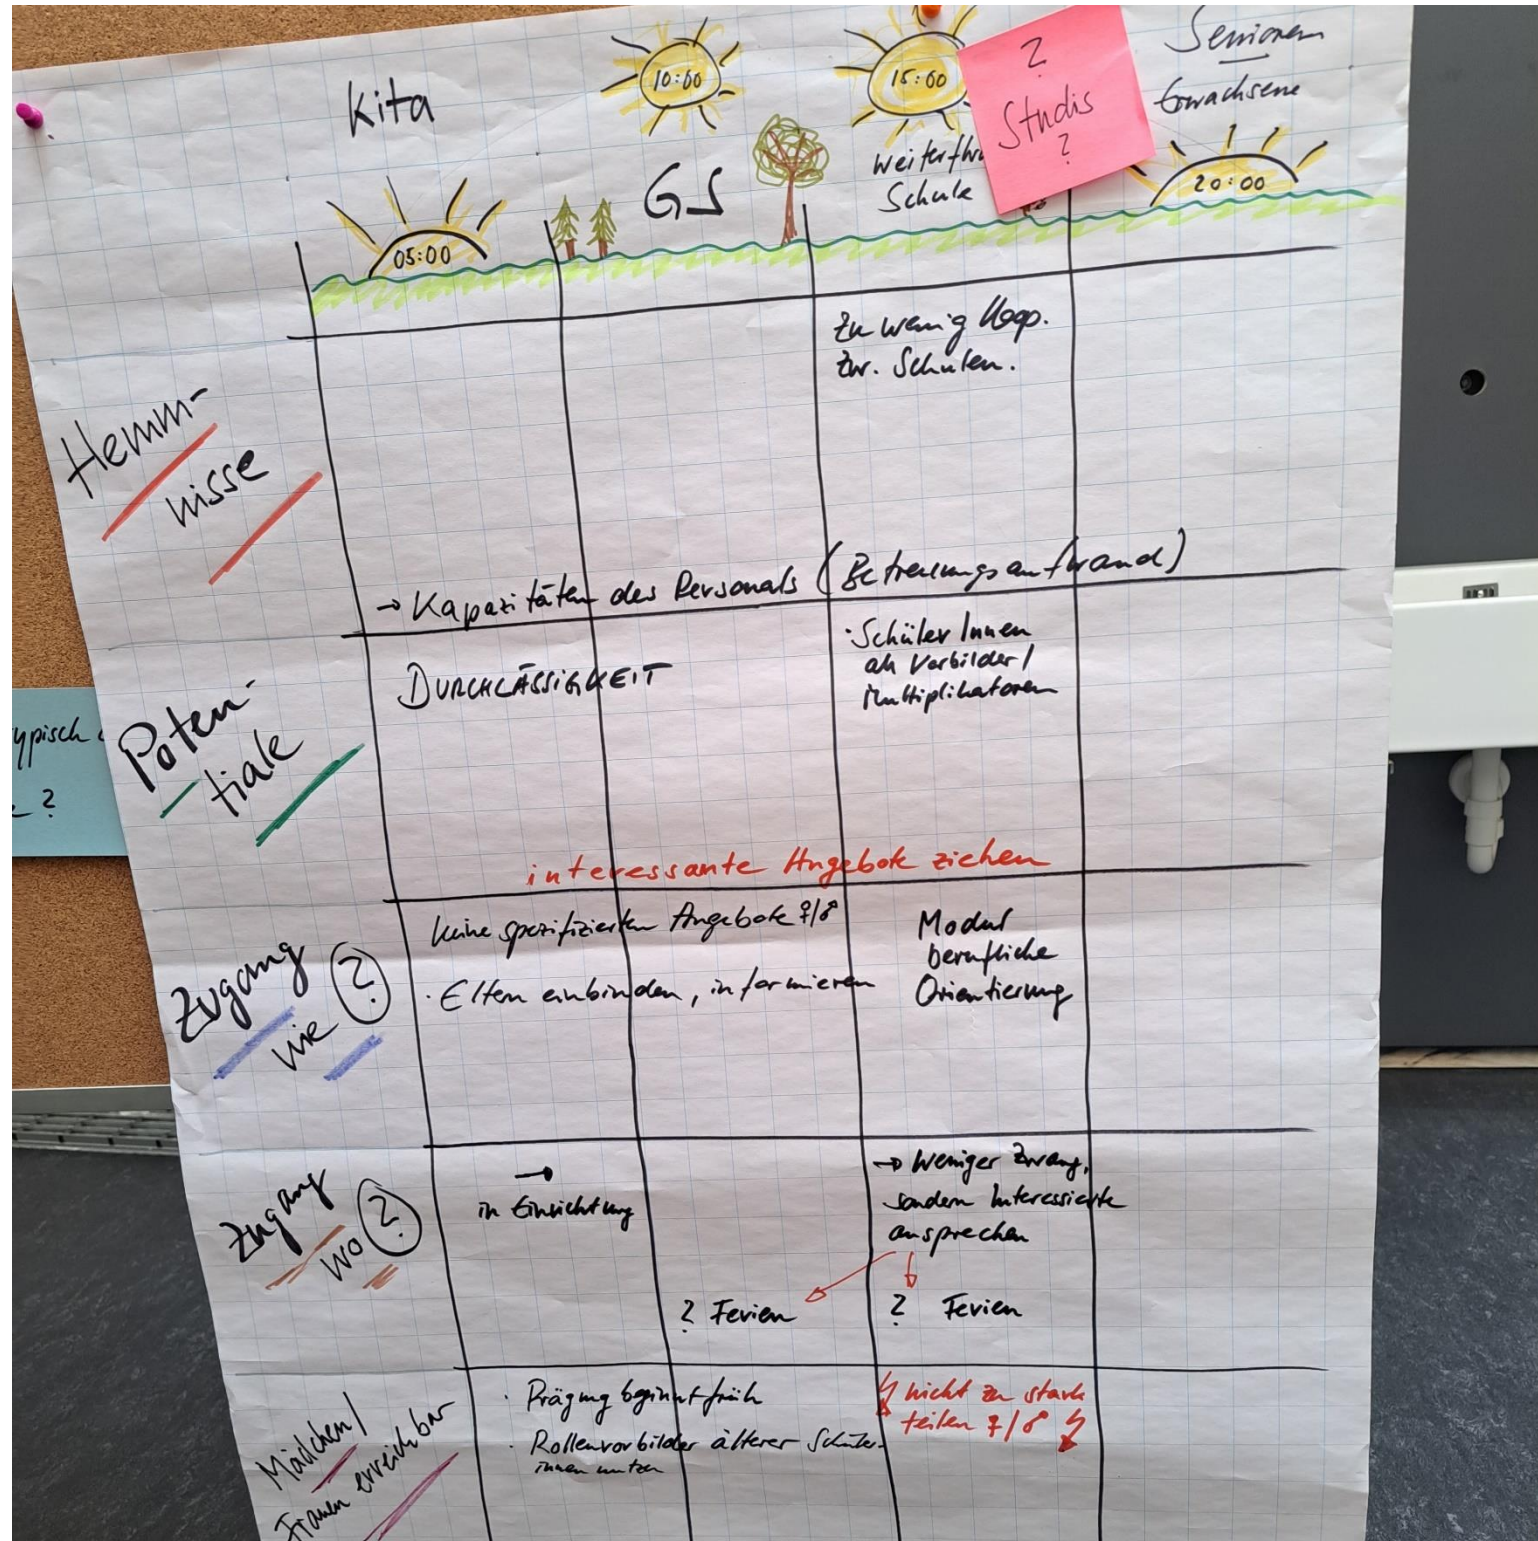 Kita
10:00
15:00
?
Studis
?
Senioren
Erwachsene
05:00
GS
Weiterfhr
Schule
20:00
Hemm-
nisse
Zu wenig Koop.
zw. Schulen.
→ Kapazitäten des Personals (Betreuungsaufwand)
Poten-
tiale
DURCHLÄSSIGKEIT
· SchülerInnen
als Vorbilder/
Multiplikatoren
interessante Angebote ziehen
ypisch
?
Zugang
wie ?
keine spezifizierten Angebote ♀/♂
· Eltern einbinden, informieren
Modul
berufliche
Orientierung
Zugang
wo ?
→
in Einrichtung
? Ferien
→ Weniger Zwang,
sondern Interessierte
ansprechen
? Ferien
Mädchen/
Frauen erreichbar
· Prägung beginnt früh
· Rollenvorbilder älterer Schüler-
innen nutzen
nicht zu stark
teilen ♀/♂